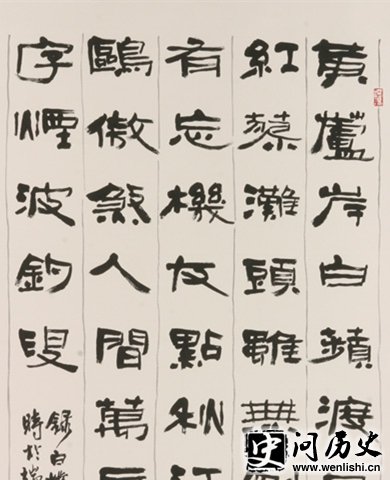 黃蘆岸白蘋渡
紅蓼灘頭雖無
有忘機友點秋江
鷗傲煞人間萬
字煙波釣叟
錄白
時於
问历史
www.wenlishi.cn